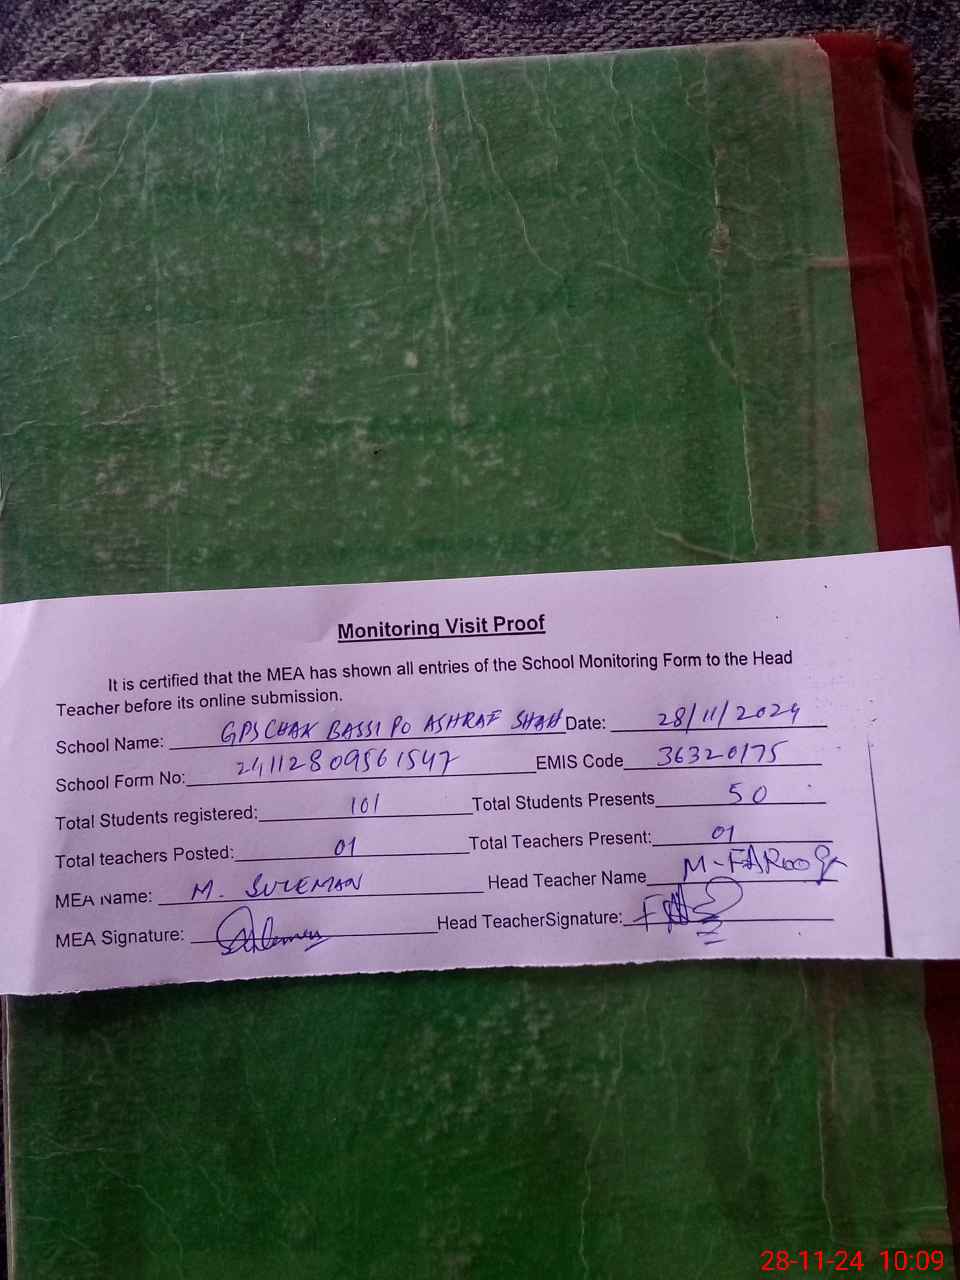 Monitoring Visit Proof
It is certified that the MEA has shown all entries of the School Monitoring Form to the Head
Teacher before its online submission.
School Name: GPS CHAK BASSI PO ASHRAF SHAH Date: 28/11/2024
School Form No: 24112809561547 EMIS Code 36320175
Total Students registered: 101 Total Students Presents 50
Total teachers Posted: 01 Total Teachers Present: 01
MEA Name: M. SULEMAN Head Teacher Name M-FAROOQ
MEA Signature: Head TeacherSignature:
28-11-24 10:09